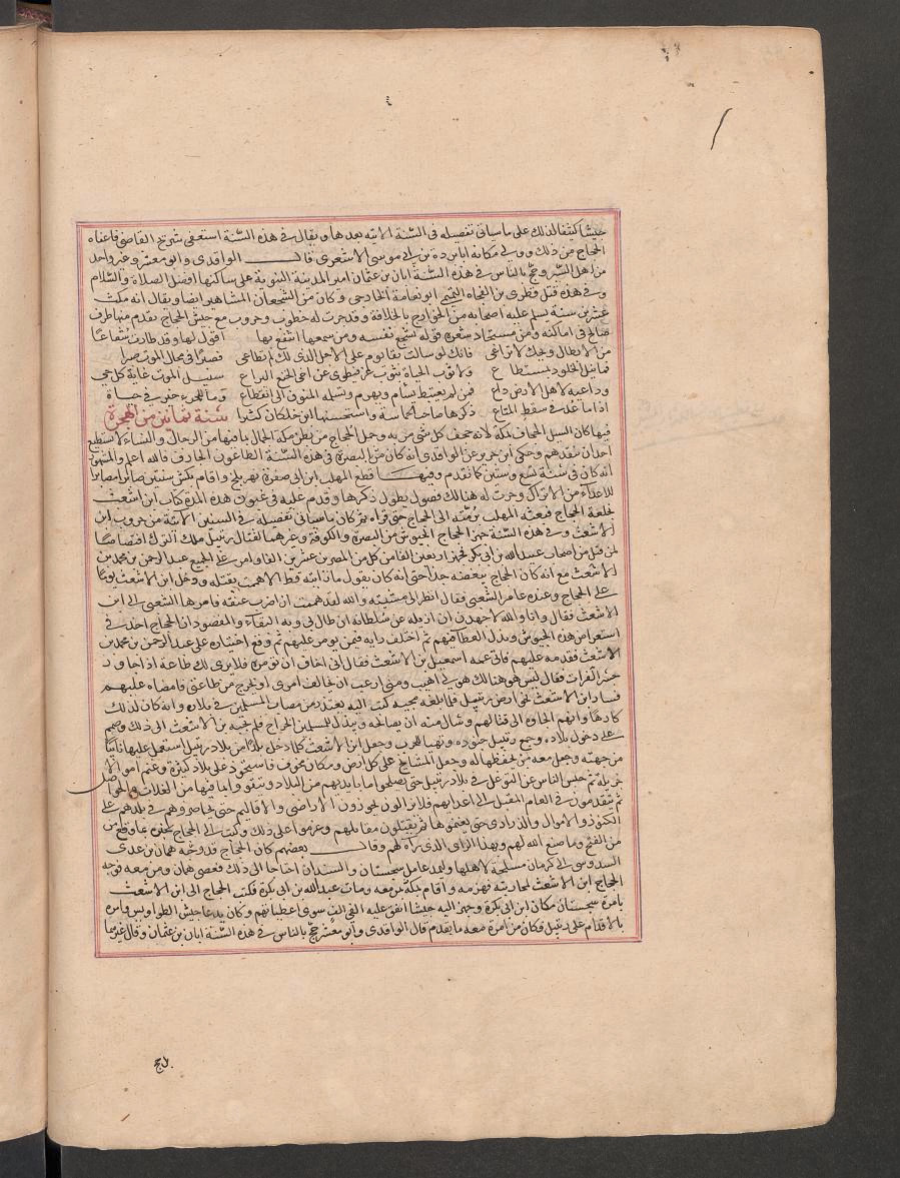 جيشا كثيفا لذلك على ما سياتي تفصيله في السنة الاتية بعدها ويقال في هذه السنة استعفى شريح القاضي فاعفاه
الحجاج من ذلك وولى مكانه ابا بردة بن ابي موسى الاشعري قال الواقدي وابو معشر وغير واحد
من اهل السير وحج بالناس في هذه السنة ابان بن عثمان امير المدينة النبوية على ساكنها افضل الصلاة والسلام
وفي هذه قتل قطري بن الفجاه التميمي ابو نعامة الخارجي وكان من الشجعان المشاهير ايضا ويقال انه مكث
عشرين سنة يسلم عليه اصحابه من الخوارج بالخلافة وقد جرت له خطوب وحروب مع جيش الحجاج تقدم منها طرف
صالح في اماكنه ومن مستجاد شعره قوله يشجع نفسه ومن سمعها انتفع بها اقول لها وقد طارت شعاعا
من الابطال ويحك لا تراعي فانك لو سالت بقا يوم على الاجل الذي لك لم تطاعي فصبرا في مجال الموت صبرا
فما نيل الخلود بمستطاع ولا ثوب الحياة بثوب عز فيطوى عن اخي الخنع اليراع سبيل الموت غاية كل حي
وداعيه لاهل الارض داع فمن لم يعتبط يسام ويهرم وتسلمه المنون الى انقطاع وما للمرء خير في حياة
اذا ما عد من سقط المتاع ذكرها صاحب الحماسة واستحسنها ابن خلكان كثيرا سنة ثمانين من الهجرة
فيها كان السيل الجحاف بمكة لانه جحف كل شي مر به وحمل الحجاج من بطن مكة الجمال بما فيها من الرجال والنساء لا يستطيع
احد ان ينقذهم وحكى ابن جرير عن الواقدي انه كان في البصرة في هذه السنة الطاعون الجارف فالله اعلم والمشهور
انه كان في سنة تسع وستين كما تقدم وفيها قطع المهلب ابن ابي صفرة نهر بلخ واقام بكش سنتين صابرا مصابرا
للاعداء من الاتراك وجرت له هنالك فصول يطول ذكرها وقدم عليه في غبون هذه المدة كتاب ابن الاشعث
بخلعه الحجاج فبعثه المهلب برمته الى الحجاج حتى قراه ثم كان ما سياتي تفصيله في السنين الاتية من حروب ابن
الاشعث وفي هذه السنة جهز الحجاج الجيوش من البصرة والكوفة وغيرهما لقتال رتبيل ملك الترك اقتصاصا
لمن قتل من اصحاب عبيد الله بن ابي بكرة فجهز اربعين الفا من كل من المصرين عشرين الفا وامر على الجميع عبد الرحمن بن محمد بن
الاشعث مع انه كان الحجاج يبغضه جدا حتى انه كان يقول ما رايته قط الا هممت بقتله ودخل ابن الاشعث يوما
على الحجاج وعنده عامر الشعبي فقال انظر الى مشيته والله لقد هممت ان اضرب عنقه فاسرها الشعبي الى ابن
الاشعث فقال وانا والله لاجهدن ان ازيله عن سلطانه ان طال بي وبه البقاء والمقصود ان الحجاج اخذ في
استعراض هذه الجيوش وبذل العطا فيهم ثم اختلف رايه فيمن يومر عليهم ثم وقع اختياره على عبد الرحمن بن محمد بن
الاشعث فقدمه عليهم فاتى عمه اسمعيل بن الاشعث فقال اني اخاف ان تومره فلا يرى لك طاعة اذا جاوز
جسر الفرات فقال ليس هو هنالك هو لي اهيب ومني ارعب ان يخالف امري او يخرج من طاعتي فامضاه عليهم
فسار ابن الاشعث نحو ارض رتبيل فلما بلغه مجيه كتب اليه يعتذر من مصاب المسلمين في بلاده وانه كان لذلك
كارها وانهم الجاوه الى قتالهم وسال منه ان يصالحه ويبذل للمسلمين الخراج فلم يجبه بن الاشعث الى ذلك وصمم
على دخول بلاده وجمع رتبيل جنوده وتهيا للحرب وجعل ابن الاشعث كلما دخل بلدا من بلاد رتبيل استعمل عليها نايبا
من جهته وجعل معه من يحفظها له وجعل المشايخ على كل ارض ومكان مخوف فاستحوذ على بلاد كثيرة وغنم اموالا
جزيلة ثم حبس الناس عن التوغل في بلاد رتبيل حتى يصلحوا ما بايديهم من البلاد ويتقووا بما فيها من الغلات والحواصل
ثم يتقدمون في العام المقبل الى اعدايهم فلا يزالون يحوزون الاراضي والاقاليم حتى يحاصروهم في بلدهم على
الكنوز والاموال والذراري حتى يغنموها ثم يقتلون مقاتلهم وعزموا على ذلك وكتب الى الحجاج بما وقع من
من الفتح وما صنع الله لهم وبهذا الراي الذي راه لهم وقال بعضهم كان الحجاج قد وجه هميان بن عدي
السدوسي الى كرمان مسلحة لاهلها وليمد عامل سجستان والسند ان احتاجا الى ذلك فعصى هميان ومن معه فوجه
الحجاج ابن الاشعث لمحاربته فهزمه واقام بمن معه ومات عبيد الله بن ابي بكرة فكتب الحجاج الى ابن الاشعث
بامرة سجستان مكان ابن ابي بكرة وجهز اليه جيشا انفق عليه الفي الف سوى اعطياتهم وكان يدعا جيش الطواويس وامره
بالاقدام على رتبيل فكان من امره معه ما تقدم قال الواقدي وابو معشر حج بالناس في هذه السنة ابان بن عثمان وقال غيرهما